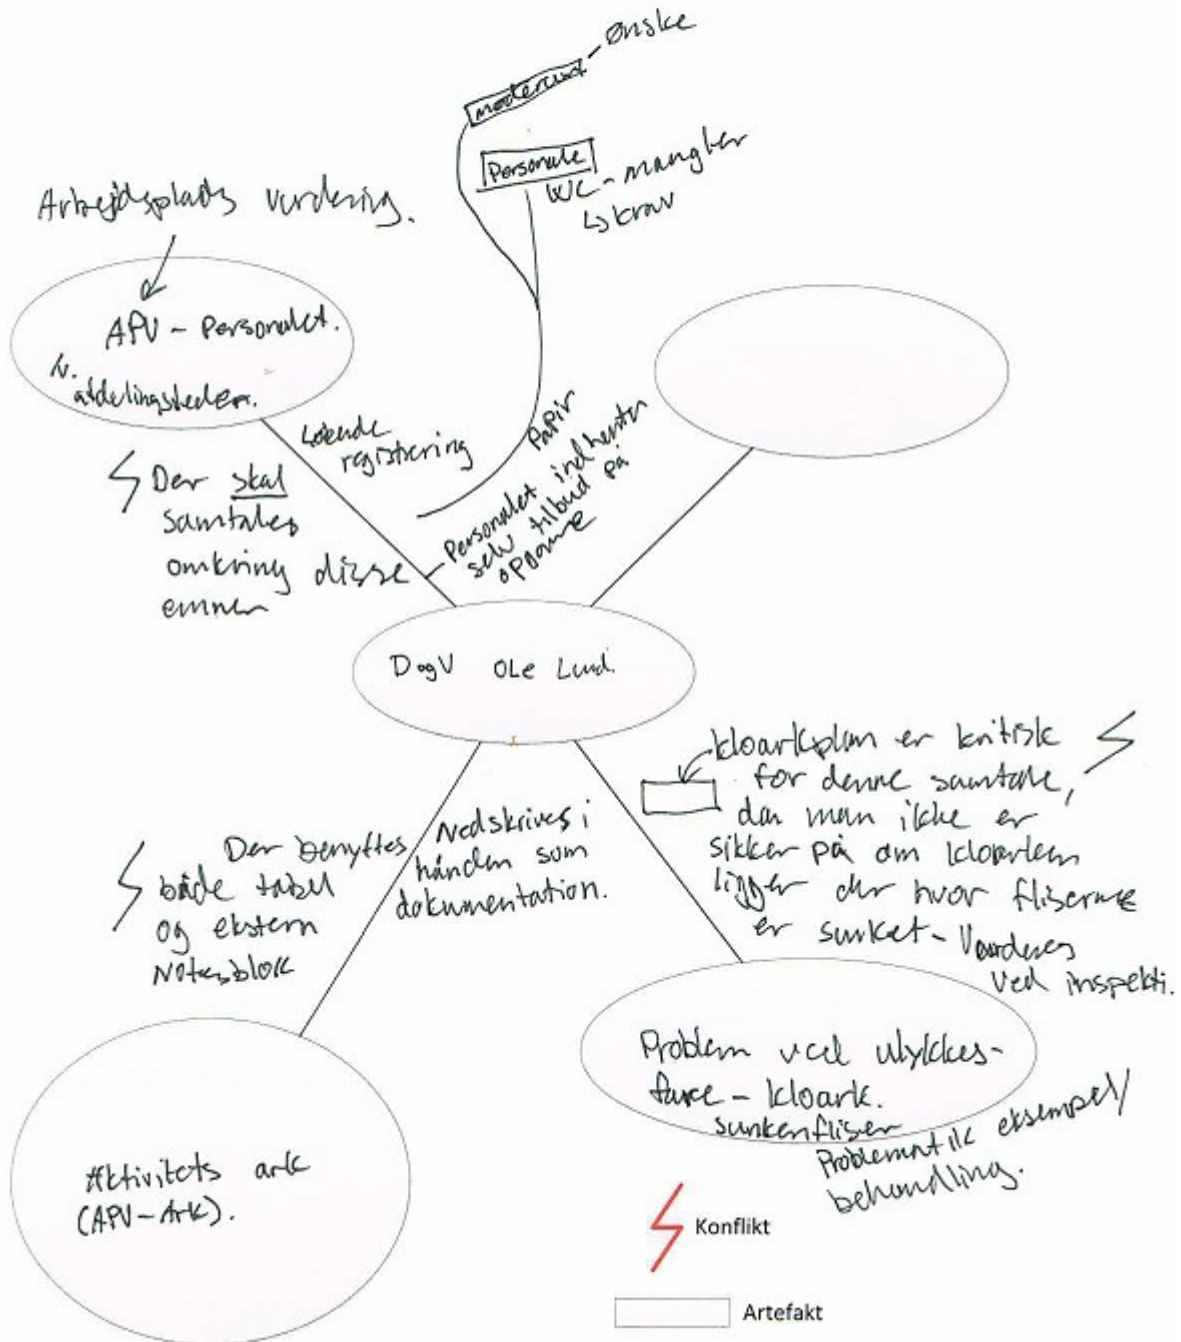 Ønske
møderum
Personale
WC - mangler
↳ krav
Arbejdsplads vurdering.
APV - Personalet.
afdelingsleder.
Løbende
registrering
Papir
Personalet indhenter
selv tilbud på
opgaverne
Der skal
samtales
omkring disse
emner
DogV Ole Lund.
kloarkplan er kritisk
for denne samtale,
da man ikke er
sikker på om kloarken
ligger der hvor fliserne
er sunket - Vurderes
ved inspekti.
Der benyttes
både tabel
og ekstern
Notesblok
Nedskrives i
hånden som
dokumentation.
Problem ved ulykkes-
fare - kloark.
sunkenfliser
Problematik eksempel/
behandling.
Aktivitets ark
(APV-Ark).
Konflikt
Artefakt